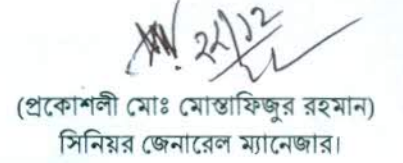 ২২/১২
(প্রকৌশলী মোঃ মোস্তাফিজুর রহমান)
সিনিয়র জেনারেল ম্যানেজার।